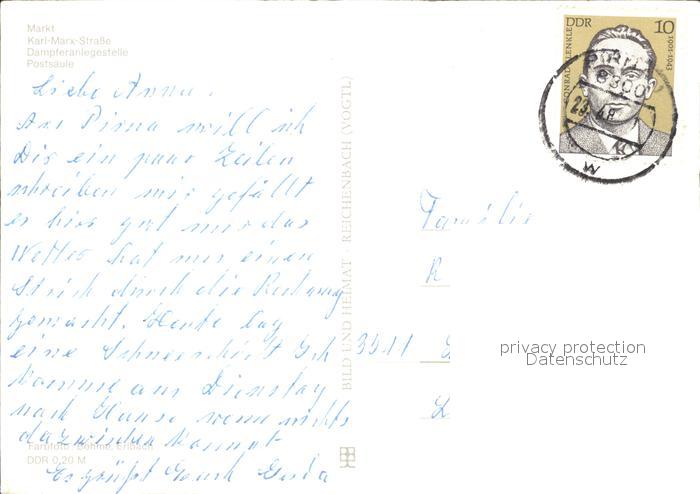 Markt
Karl-Marx-Straße
Dampferanlegestelle
Postsäule
Liebe Anna.
Aus Pirna will ich
Dir ein paar Zeilen
schreiben mir gefällt
es hier gut nur das
Wetter hat mir einen
Strich durch die Rechnung
gemacht. Heute lag
eine Schneeschicht Ich
komme am Dienstag
nach Hause wenn nichts
dazwischen kommt
Es grüßt Euch
Farbfoto: Böhme, Erlbach
DDR 0,20 M
BILD UND HEIMAT · REICHENBACH (VOGTL)
DDR 10
KONRAD BLENKLE
1901-1943
PIRNA 1
8300
Familie
R
privacy protection
Datenschutz